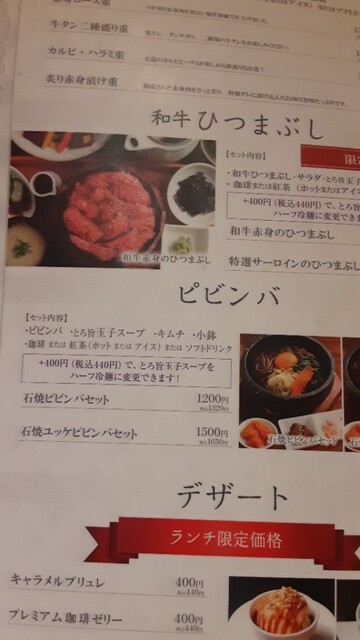 牛タン二種盛り重
カルビ・ハラミ重
炙り赤身漬け重
和牛ひつまぶし
【セット内容】
・和牛ひつまぶし・サラダ・とろ旨玉子
・珈琲または紅茶（ホットまたはアイス
+400円(税込440円)で、とろ旨
ハーフ冷麺に変更
和牛赤身のひつまぶし
和牛赤身のひつまぶし
特選サーロインのひつまぶ
ピビンバ
【セット内容】
・ピビンバ ・とろ旨玉子スープ ・キムチ ・小鉢
・珈琲 または 紅茶(ホット または アイス) または ソフトドリンク
+400円(税込440円)で、とろ旨玉子スープを
ハーフ冷麺に変更できます!
石焼ピビンバセット 1200円
税込1320円
石焼ユッケピビンバセット 1500円
税込1650円
石焼ピビンバセット
デザート
ランチ限定価格
キャラメルブリュレ 400円
税込440円
プレミアム珈琲ゼリー 400円
税込440円